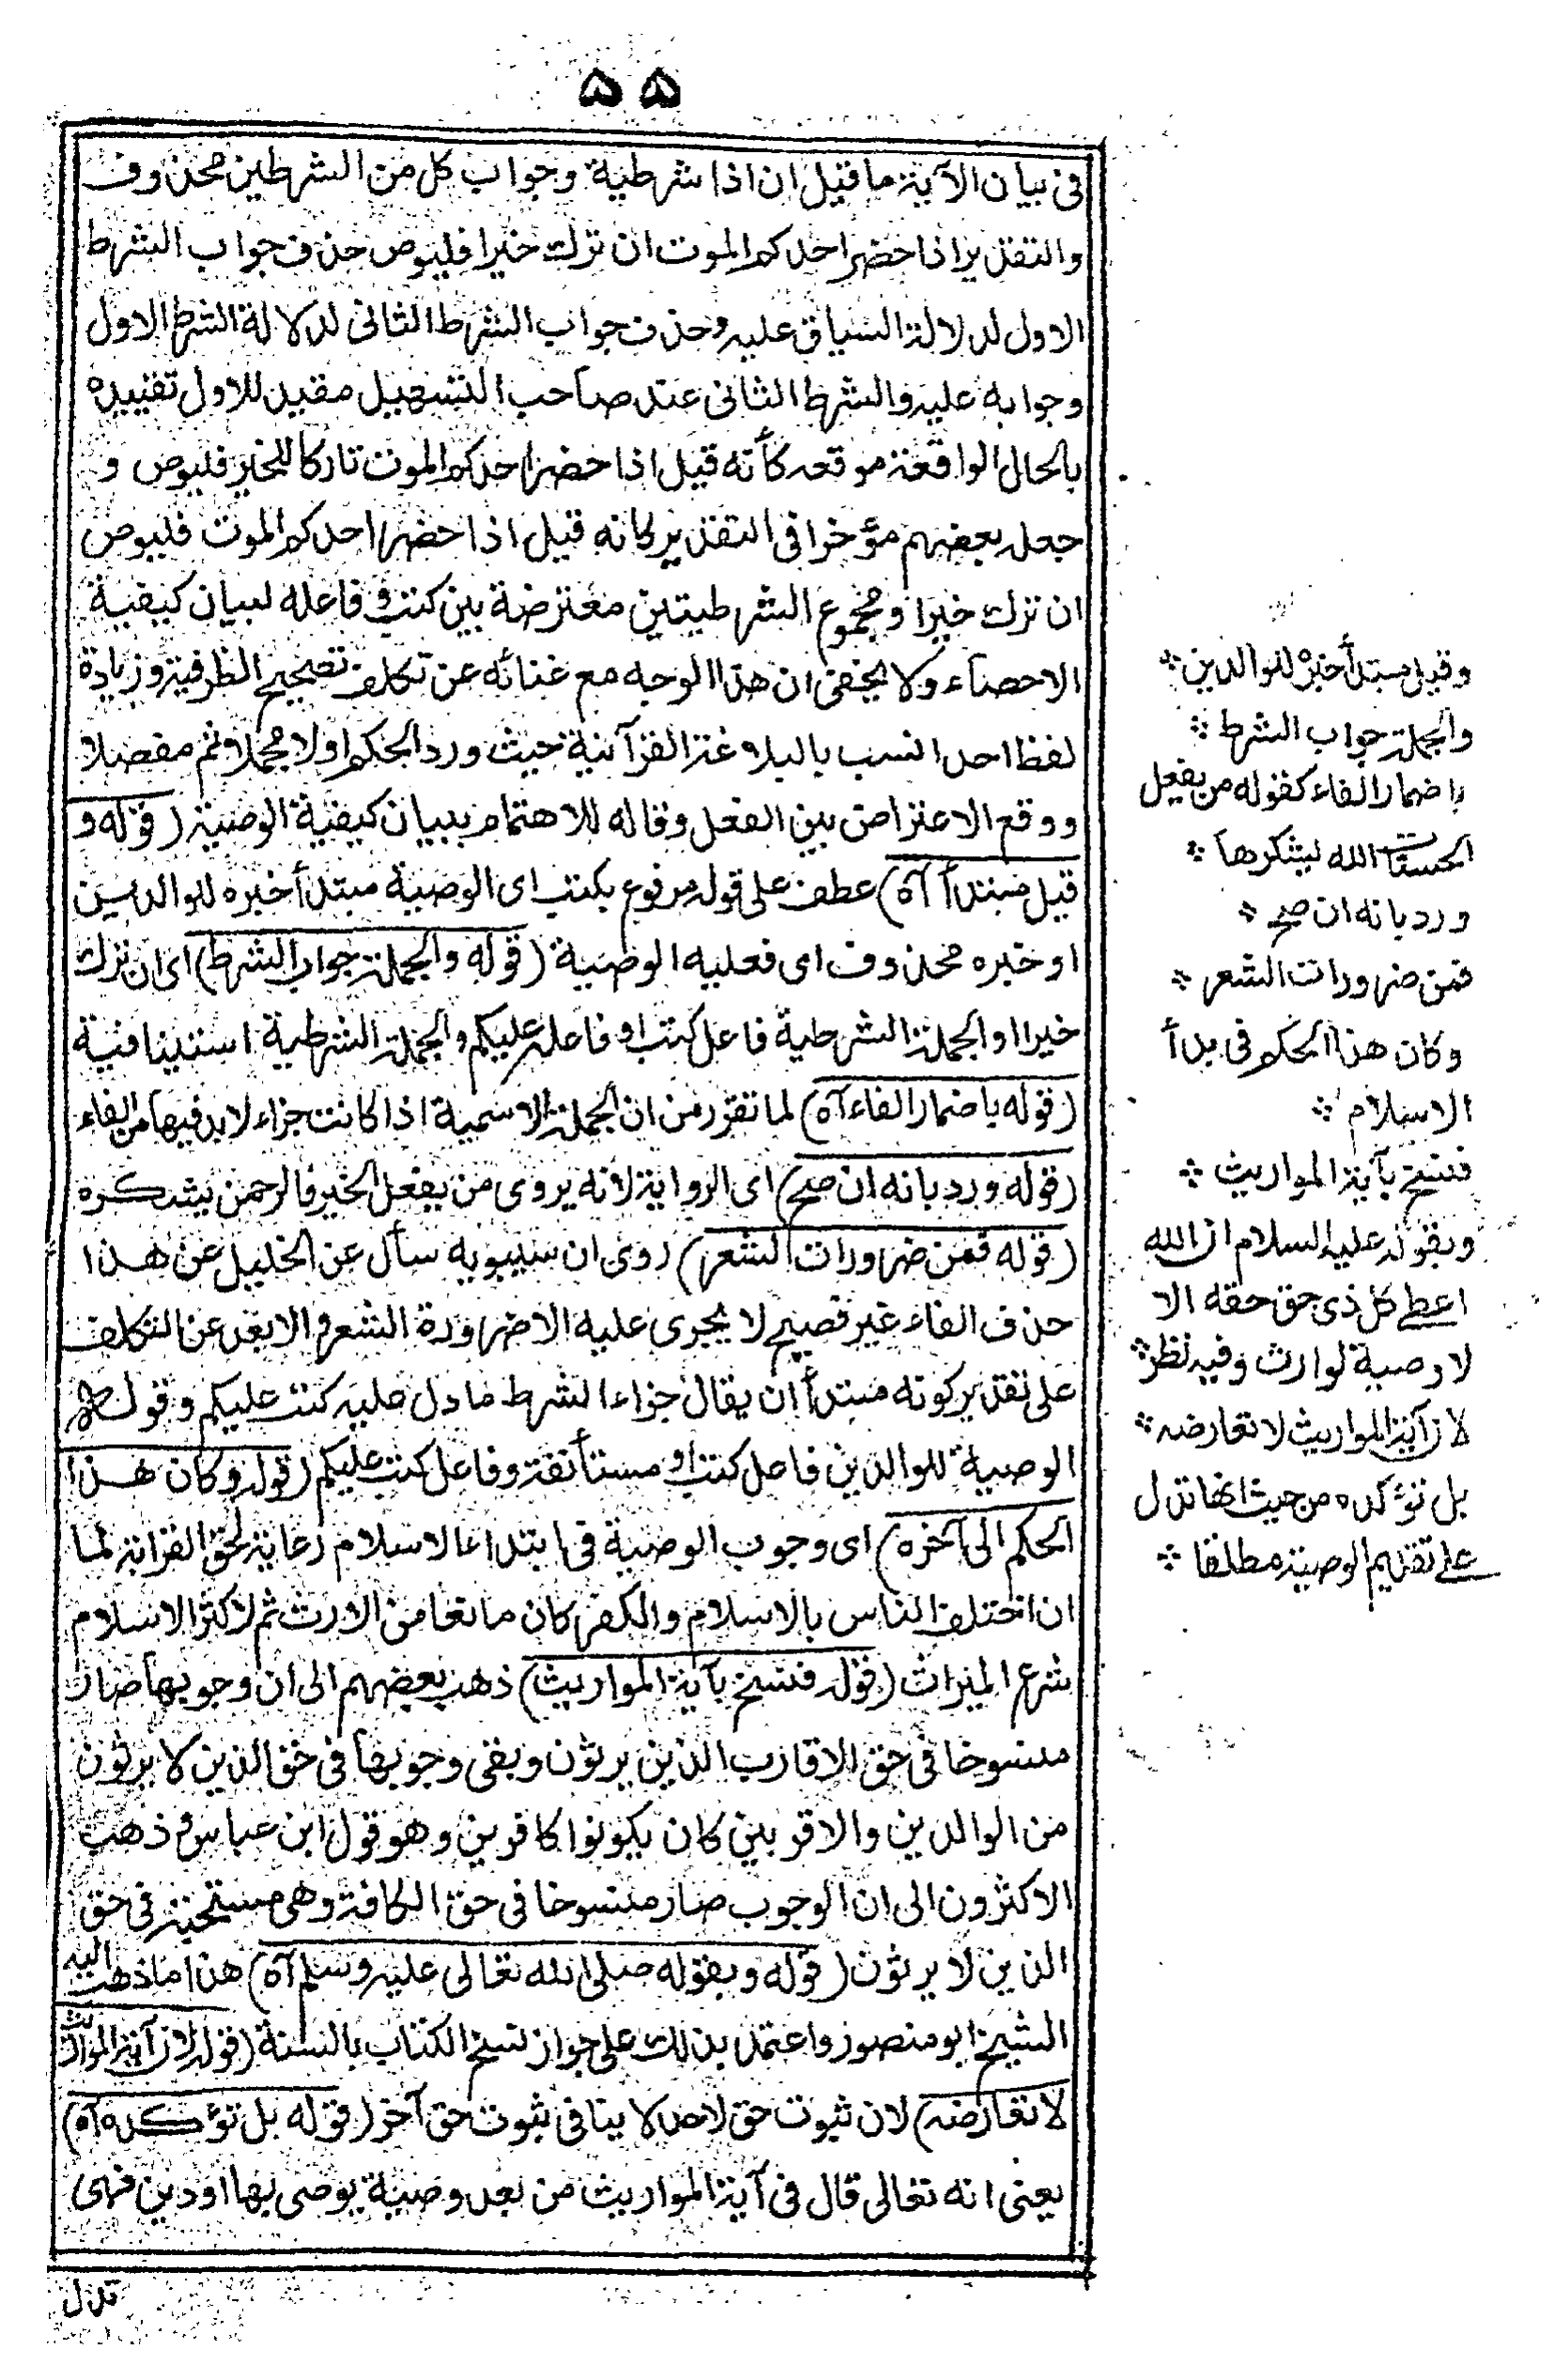 ٥٥
فى بيان الآية ما قيل ان اذا شرطية وجواب كل من الشرطين محذوف
والتقدير اذا حضر احدكم الموت ان ترك خيرا فليوص حذف جواب الشرط
الاول لدلالة السياق عليه وحذف جواب الشرط الثانى لدلالة الشرط الاول
وجوابه عليه والشرط الثانى عند صاحب التسهيل مقيد للاول تقييده
بالحال الواقعة موقعه كأنه قيل اذا حضر احدكم الموت تاركا للخير فليوص و
جعل بعضهم مؤخرا فى التقدير كانه قيل اذا حضر احدكم الموت فليوص
ان ترك خيرا ومجموع الشرطيتين معترضة بين كتب وفاعله لبيان كيفية
الاحصاء ولا يخفى ان هذا الوجه مع غنائه عن تكلف تصحيح الظرفية وزيادة
لفظ احد انسب بالبلاغة القرآنية حيث ورد الحكم اولا مجملا وثم مفصلا
ووقع الاعتراض بين الفعل وفاله للاهتمام ببيان كيفية الوصية (قوله و
قيل مبتدأ آه) عطف على قوله مرفوع بكتب اى الوصية مبتدأ خبره للوالدين
او خبره محذوف اى فعليه الوصية (قوله والجملة جواب الشرط) اى ان ترك
خيرا والجملة الشرطية فاعل كتب او فاعله عليكم والجملة الشرطية استينافية
(قوله باضمار الفاء آه) لما تقرر من ان الجملة الاسمية اذا كانت جزاء لابد فيها من الفاء
(قوله ورد بانه ان صح) اى الرواية لانه يروى من يفعل الخير فالرحمن يشكره
(قوله فمن ضرورات الشعر) روى ان سيبويه سأل عن الخليل عن هذا
حذف الفاء غير فصيح لا يجرى عليه الا ضرورة الشعر والابعد عن التكلف
على تقدير كونه مبتدأ ان يقال جزاء الشرط ما دل عليه كتب عليكم وقوله
الوصية للوالدين فاعل كتب او مستأنفة وفاعل كتب عليكم (قوله وكان هذا
الحكم الى آخره) اى وجوب الوصية فى ابتداء الاسلام رعاية لحق القرابة لما
ان اختلف الناس بالاسلام والكفر كان مانعا من الارث ثم لا كثر الاسلام
شرع الميراث (قوله فنسخ بآية المواريث) ذهب بعضهم الى ان وجوبها صار
منسوخا فى حق الاقارب الذين يرثون وبقى وجوبها فى حق الذين لا يرثون
من الوالدين والاقربين كان يكونوا كافرين وهو قول ابن عباس وذهب
الاكثرون الى ان الوجوب صار منسوخا فى حق الكافة وهى مستحبة فى حق
الذين لا يرثون (قوله وبقوله صلى الله تعالى عليه وسلم آه) هذا ما ذهب اليه
الشيخ ابو منصور واعتمد بذلك على جواز نسخ الكتاب بالسنة (قوله لان آية المواريث
لا تعارضه) لان ثبوت حق لاحد لا ينافى ثبوت حق آخر (قوله بل تؤكده آه)
يعنى انه تعالى قال فى آية المواريث من بعد وصية يوصى بها او دين فهى
تدل
وقيل مبتدأ خبره للوالدين
والجملة جواب الشرط
باضمار الفاء كقوله من يفعل
الحسنات الله يشكرها
ورد بانه ان صح
فمن ضرورات الشعر
وكان هذا الحكم فى بدأ
الاسلام
فنسخ بآية المواريث
وبقوله عليه السلام ان الله
اعطى كل ذى حق حقه الا
لا وصية لوارث وفيه نظر
لان آية المواريث لا تعارضه
بل تؤكده من حيث انها تدل
على تقديم الوصية مطلقا